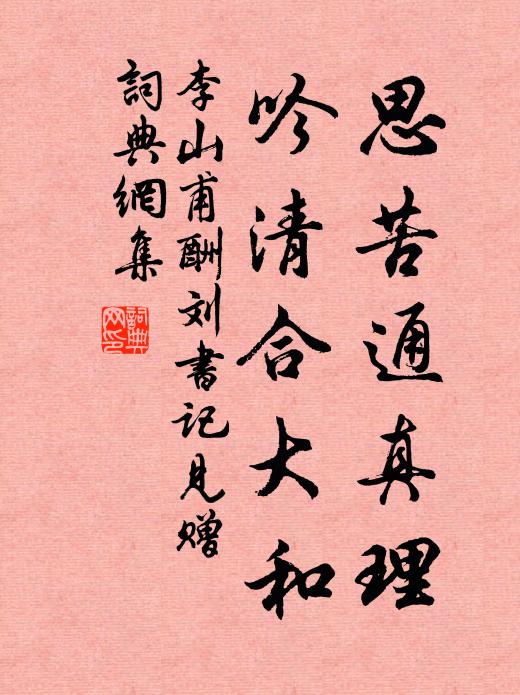 思苦通真理
吟清合大和
李山甫酬刘書記見贈
詞典網集
詞典网印